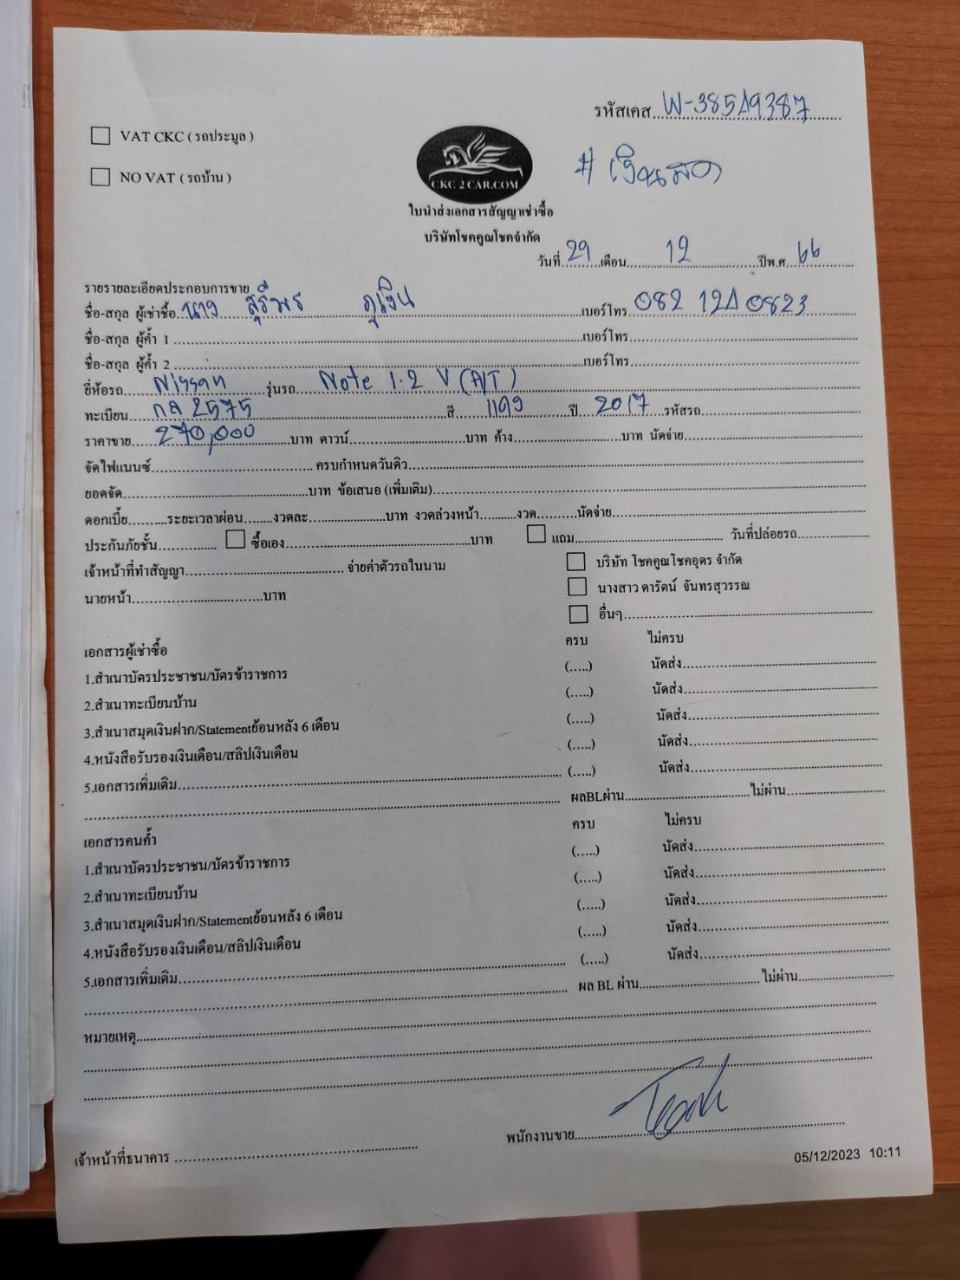 รหัสเคส W-38549387
VAT CKC ( รถประมูล )
NO VAT ( รถบ้าน )
# เงินสด
CKC 2 CAR.COM
ใบนำส่งเอกสารสัญญาเช่าซื้อ
บริษัทโชคคูณโชคจำกัด
วันที่ 29 เดือน 12 ปีพ.ศ. 66
รายรายละเอียดประกอบการขาย
ชื่อ-สกุล ผู้เช่าซื้อ นาง สุรีพร ภูเงิน เบอร์โทร 082 1240823
ชื่อ-สกุล ผู้ค้ำ 1 เบอร์โทร
ชื่อ-สกุล ผู้ค้ำ 2 เบอร์โทร
ยี่ห้อรถ Nissan รุ่นรถ Note 1.2 V (A/T)
ทะเบียน กล 2575 สี เทา ปี 2017 รหัสรถ
ราคาขาย 270,000 บาท ดาวน์ บาท ค้าง บาท นัดจ่าย
จัดไฟแนนซ์ ครบกำหนดวันคิว
ยอดจัด บาท ข้อเสนอ (เพิ่มเติม)
ดอกเบี้ย ระยะเวลาผ่อน งวดละ บาท งวดล่วงหน้า งวด นัดจ่าย
ประกันภัยชั้น ซื้อเอง บาท แถม วันที่ปล่อยรถ
เจ้าหน้าที่ทำสัญญา จ่ายค่าตัวรถในนาม บริษัท โชคคูณโชคอุดร จำกัด
นายหน้า บาท นางสาว ดารัตน์ จันทรสุวรรณ
อื่นๆ
เอกสารผู้เช่าซื้อ ครบ ไม่ครบ
1.สำเนาบัตรประชาชน/บัตรข้าราชการ (.....) นัดส่ง
2.สำเนาทะเบียนบ้าน (.....) นัดส่ง
3.สำเนาสมุดเงินฝาก/Statementย้อนหลัง 6 เดือน (.....) นัดส่ง
4.หนังสือรับรองเงินเดือน/สลิปเงินเดือน (.....) นัดส่ง
5.เอกสารเพิ่มเติม (.....) นัดส่ง
ผลBLผ่าน ไม่ผ่าน
เอกสารคนค้ำ ครบ ไม่ครบ
1.สำเนาบัตรประชาชน/บัตรข้าราชการ (.....) นัดส่ง
2.สำเนาทะเบียนบ้าน (.....) นัดส่ง
3.สำเนาสมุดเงินฝาก/Statementย้อนหลัง 6 เดือน (.....) นัดส่ง
4.หนังสือรับรองเงินเดือน/สลิปเงินเดือน (.....) นัดส่ง
5.เอกสารเพิ่มเติม (.....) นัดส่ง
ผล BL ผ่าน ไม่ผ่าน
หมายเหตุ
พนักงานขาย
เจ้าหน้าที่ธนาคาร
05/12/2023 10:11